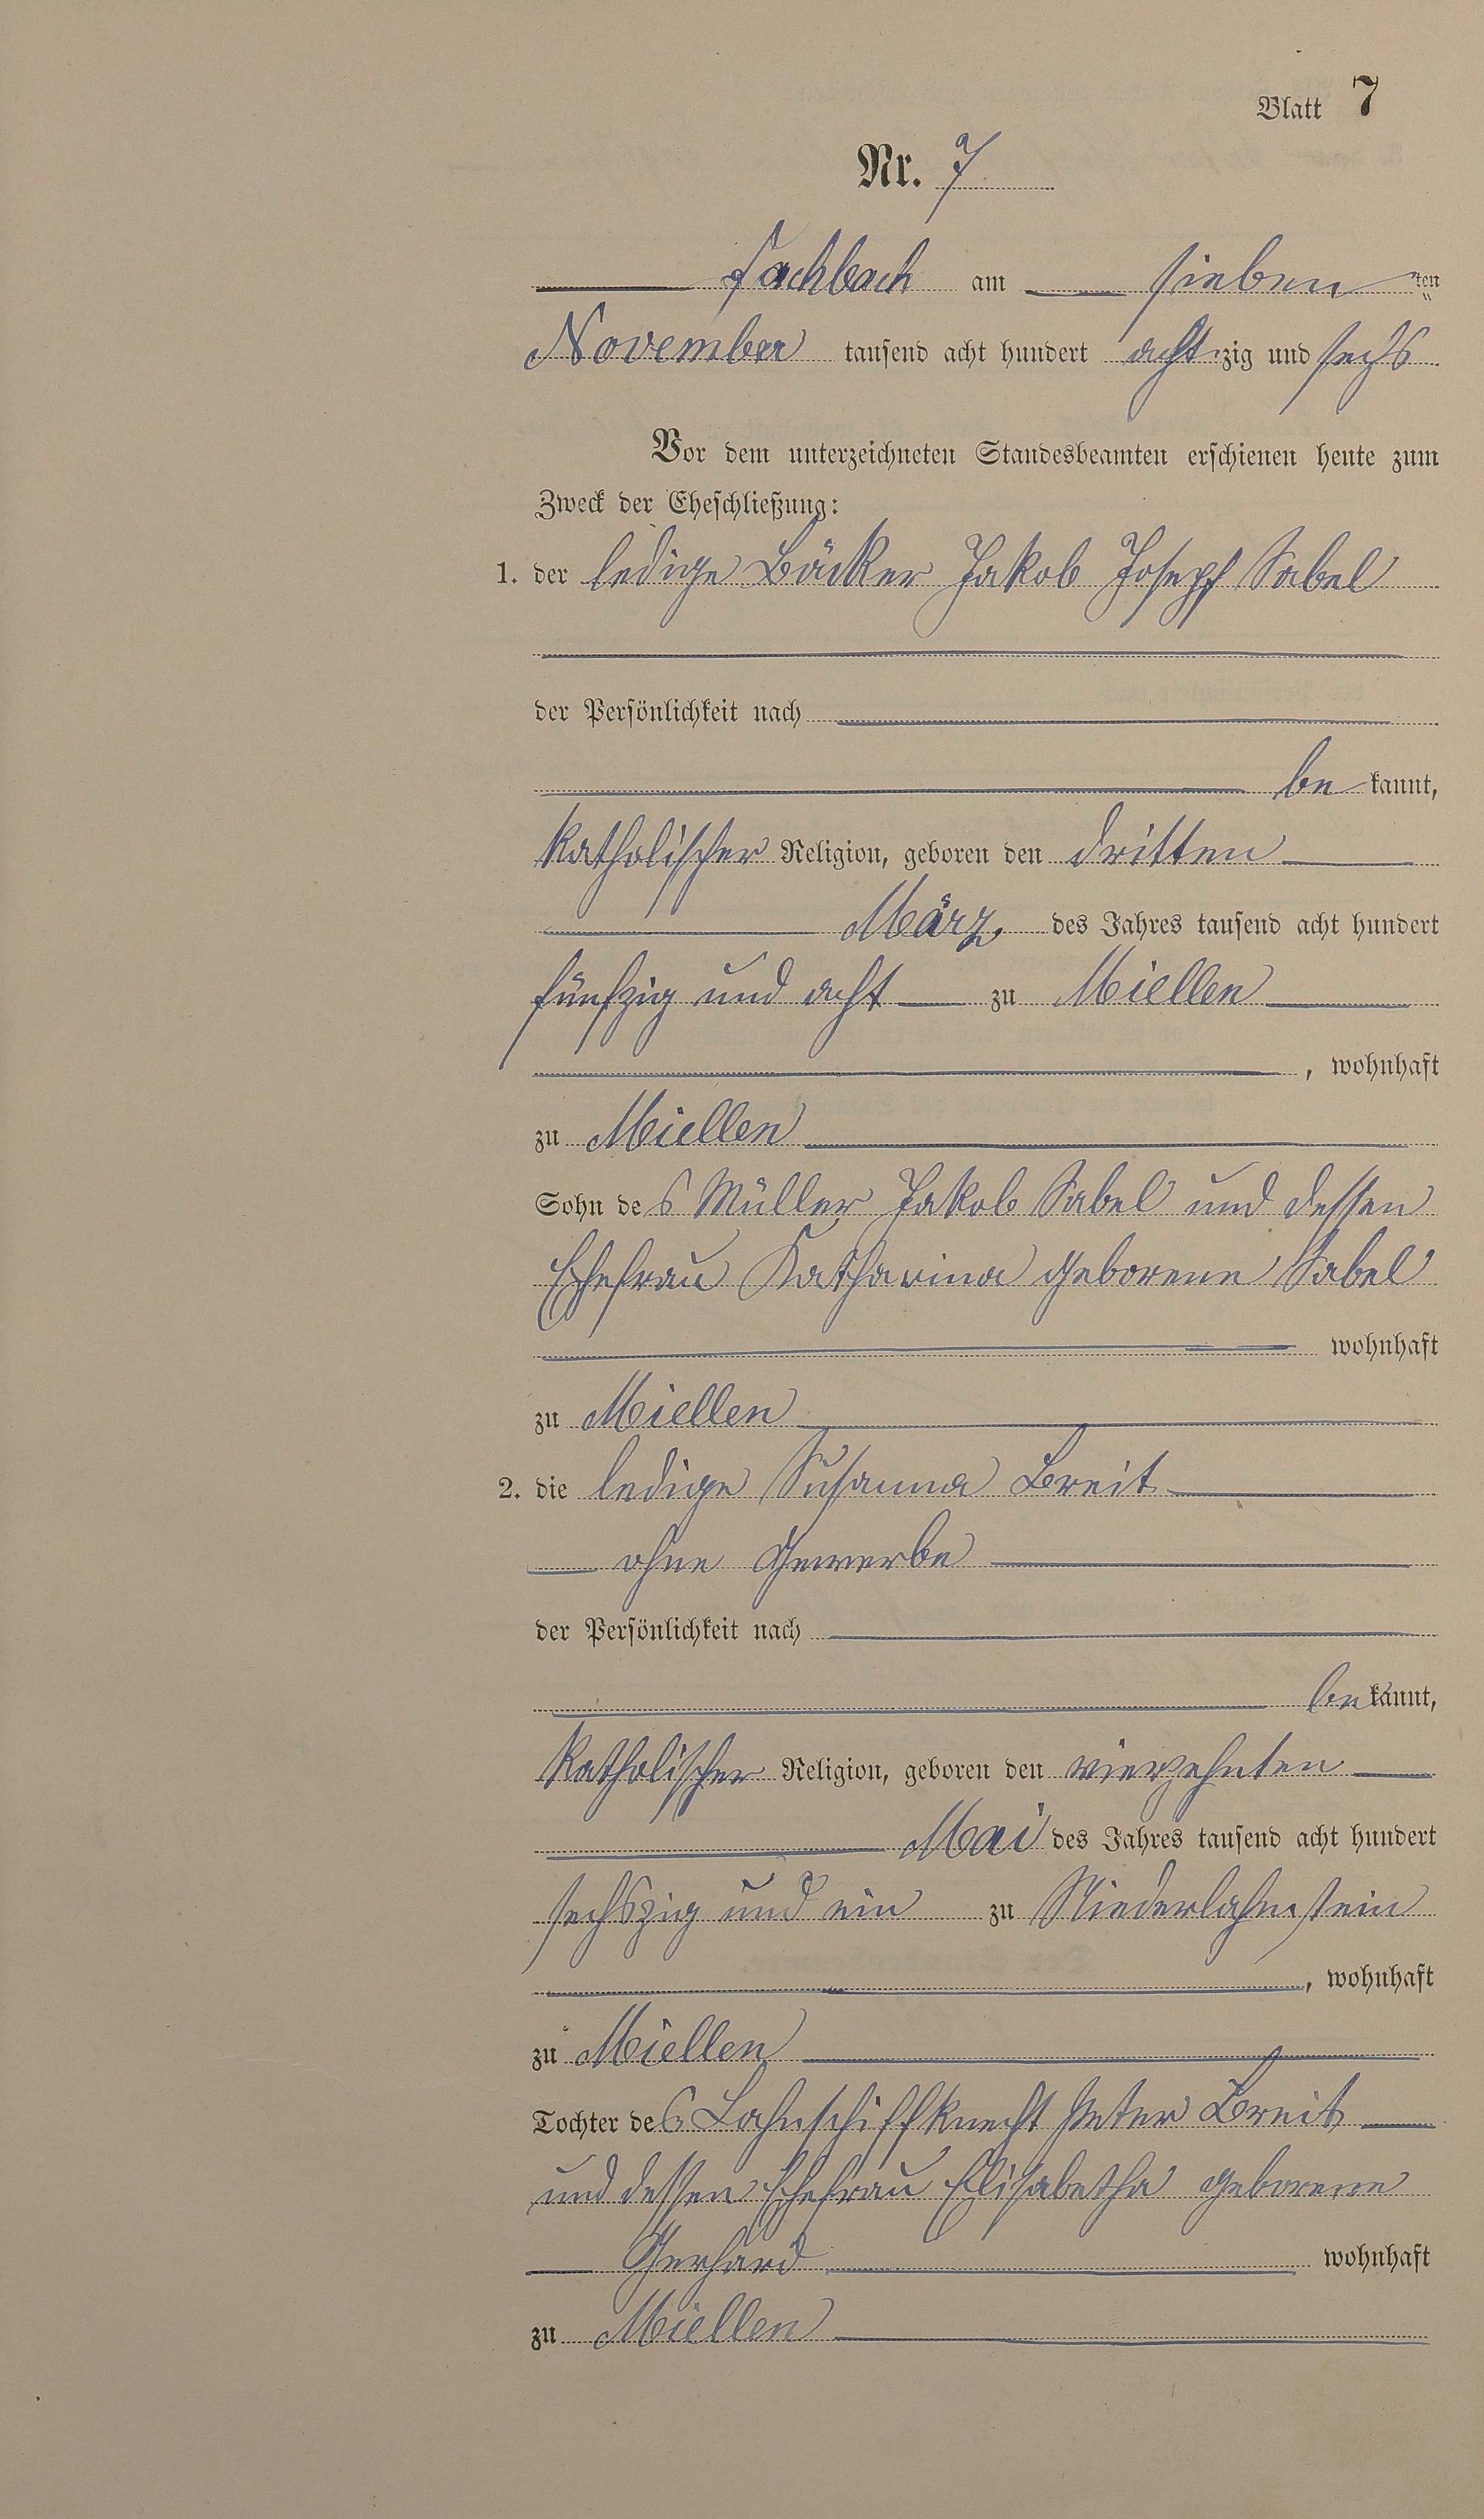 Blatt 7
Nr. 7
Fachbach am sieben ten
November tausend acht hundert achtzig und sechs
Vor dem unterzeichneten Standesbeamten erschienen heute zum
Zweck der Eheschließung:
1. der ledige Bäcker Jakob Joseph Sabel
der Persönlichkeit nach
be kannt,
katholischer Religion, geboren den dritten
März des Jahres tausend acht hundert
fünfzig und acht zu Miellen
, wohnhaft
zu Miellen
Sohn des Müller Jakob Sabel und dessen
Ehefrau Katharina geborene Sabel
wohnhaft
zu Miellen
2. die ledige Susanna Breit
ohne Gewerbe
der Persönlichkeit nach
be kannt,
katholischer Religion, geboren den vierzehnten
Mai des Jahres tausend acht hundert
sechszig und ein zu Niederlahnstein
, wohnhaft
zu Miellen
Tochter des Lahnschiffknecht Peter Breit
und dessen Ehefrau Elisabetha geborene
Gerhard wohnhaft
zu Miellen